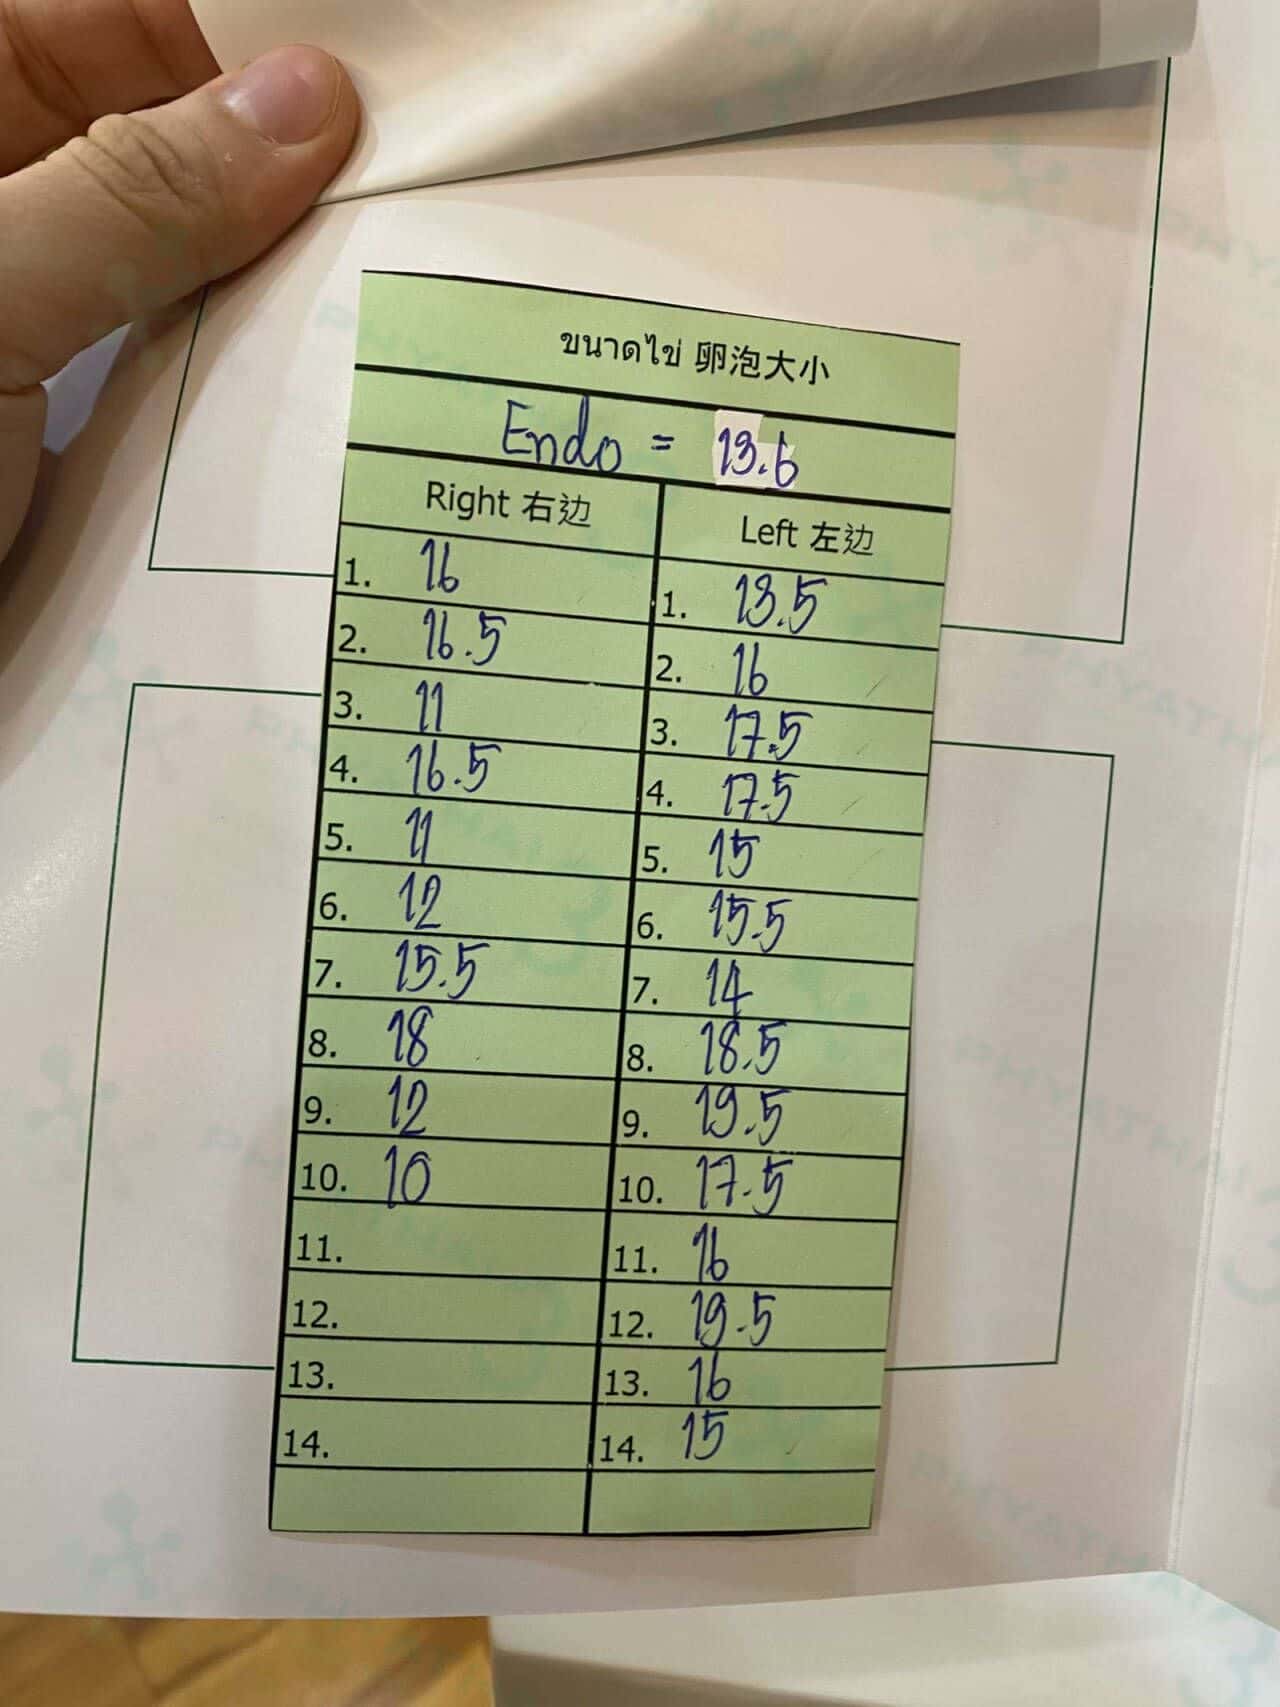 ขนาดไข่ 卵泡大小
Endo = 13.6
Right 右边 Left 左边
1. 16 1. 13.5
2. 16.5 2. 16
3. 11 3. 17.5
4. 16.5 4. 17.5
5. 11 5. 15
6. 12 6. 15.5
7. 15.5 7. 14
8. 18 8. 18.5
9. 12 9. 19.5
10. 10 10. 17.5
11. 11. 16
12. 12. 19.5
13. 13. 16
14. 14. 15